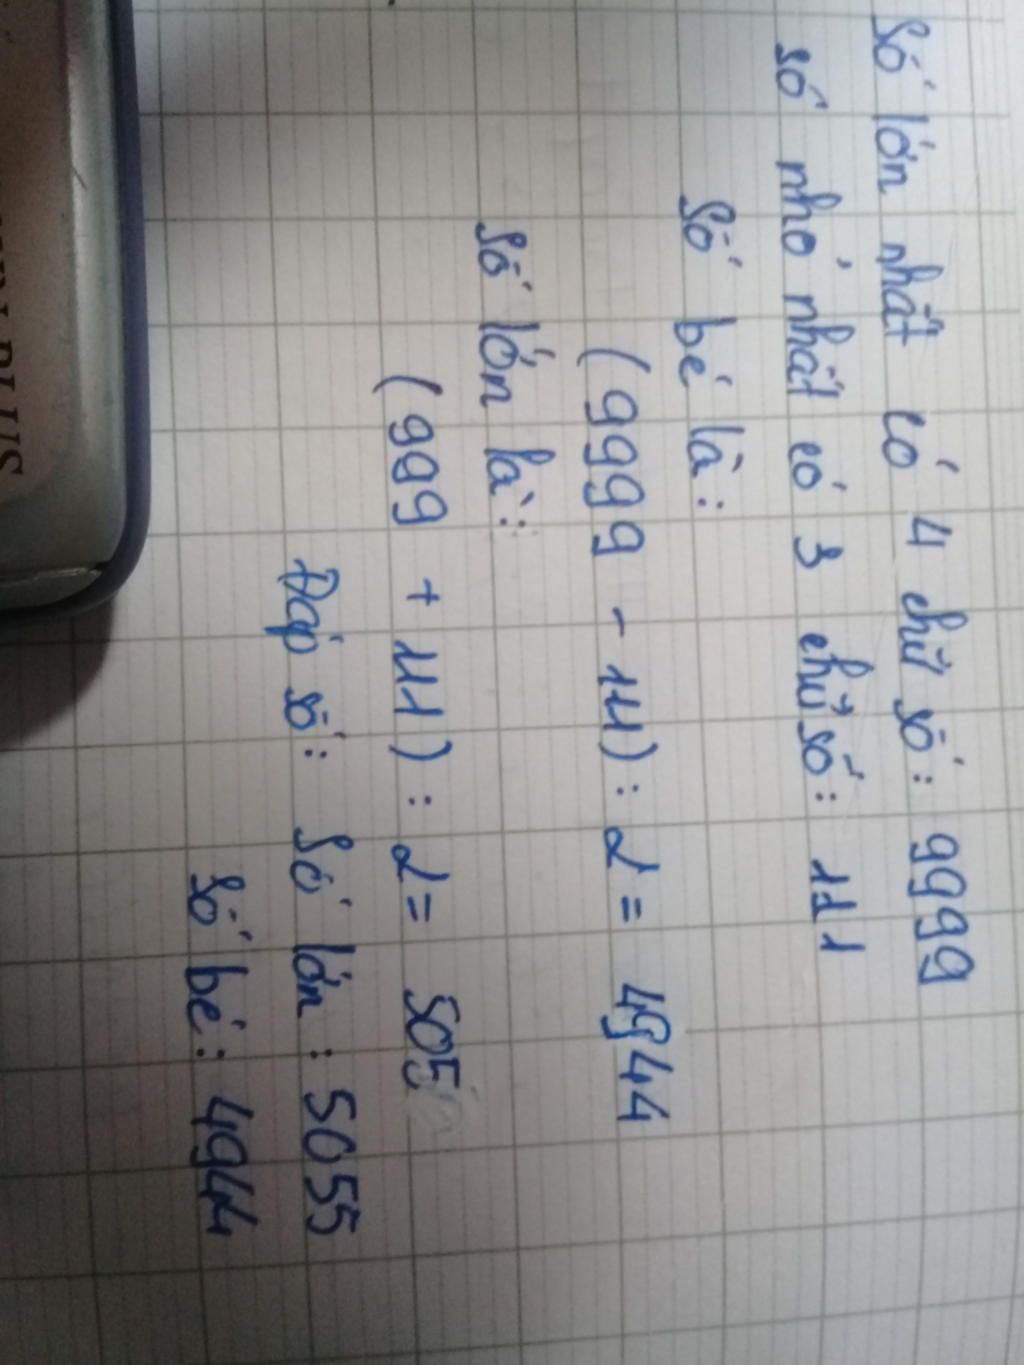 Số lớn nhất có 4 chữ số: 9999
số nhỏ nhất có 3 chữ số: 111
Số bé là:
(9999 - 111) : 2 = 4944
Số lớn là:
(999 + 111) : 2 = 505
Đáp số: Số lớn : 5055
Số bé : 4944
PLUS